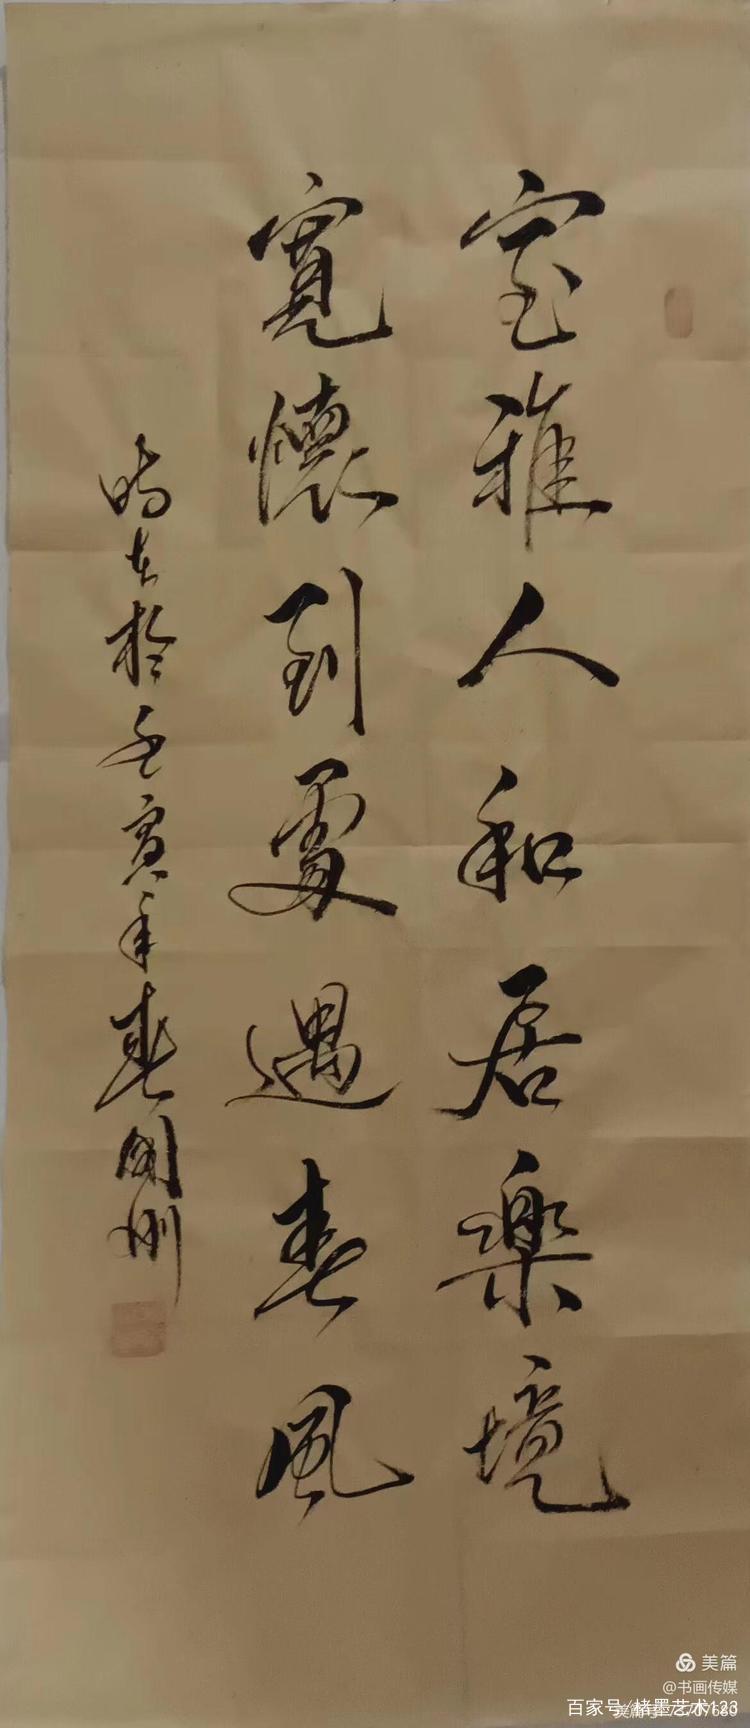 室雅人和居樂境
寬懷到處遇春風
時在於壬寅年春國州
美篇
@书画传媒
百家号/楮墨艺术123